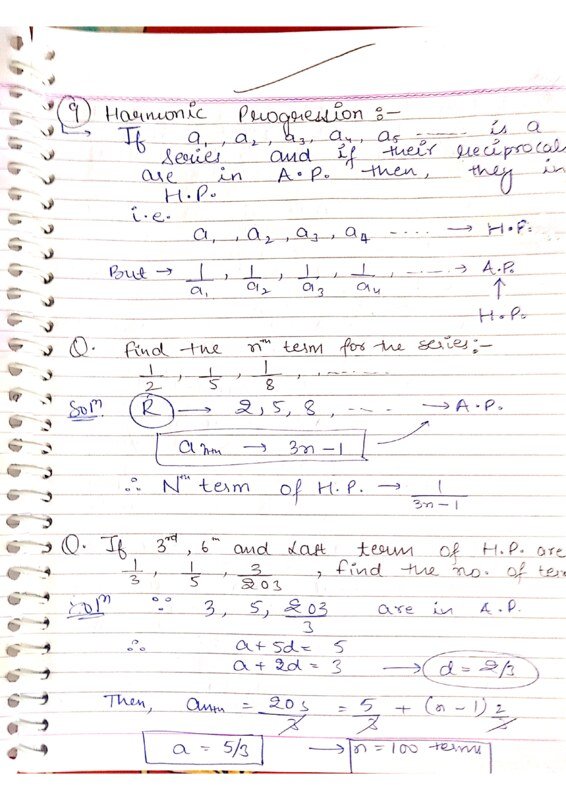 9 Harmonic Progression :-
If a₁, a₂, a₃, a₄, a₅ ....... is a
series and if their reciprocals
are in A.P. then, they in
H.P.
i.e.
a₁, a₂, a₃, a₄ ..... → H.P.
But → 1/a₁, 1/a₂, 1/a₃, 1/a₄, ......→ A.P.
↑
H.P.
Q. Find the nᵗʰ term for the series:-
1/2, 1/5, 1/8, ........
Solⁿ R → 2, 5, 8, .... → A.P.
aₙₜₕ → 3n-1
∴ Nᵗʰ term of H.P. → 1/(3n-1)
Q. If 3ʳᵈ, 6ᵗʰ and Last term of H.P. are
1/3, 1/5, 3/203, find the no. of ter
Solⁿ ∵ 3, 5, 203/3 are in A.P.
∴ a+5d = 5
a+2d = 3 → d = 2/3
Then, aₙₜₕ = 203/3 = 5/3 + (n-1) 2/3
a = 5/3 → n = 100 terms